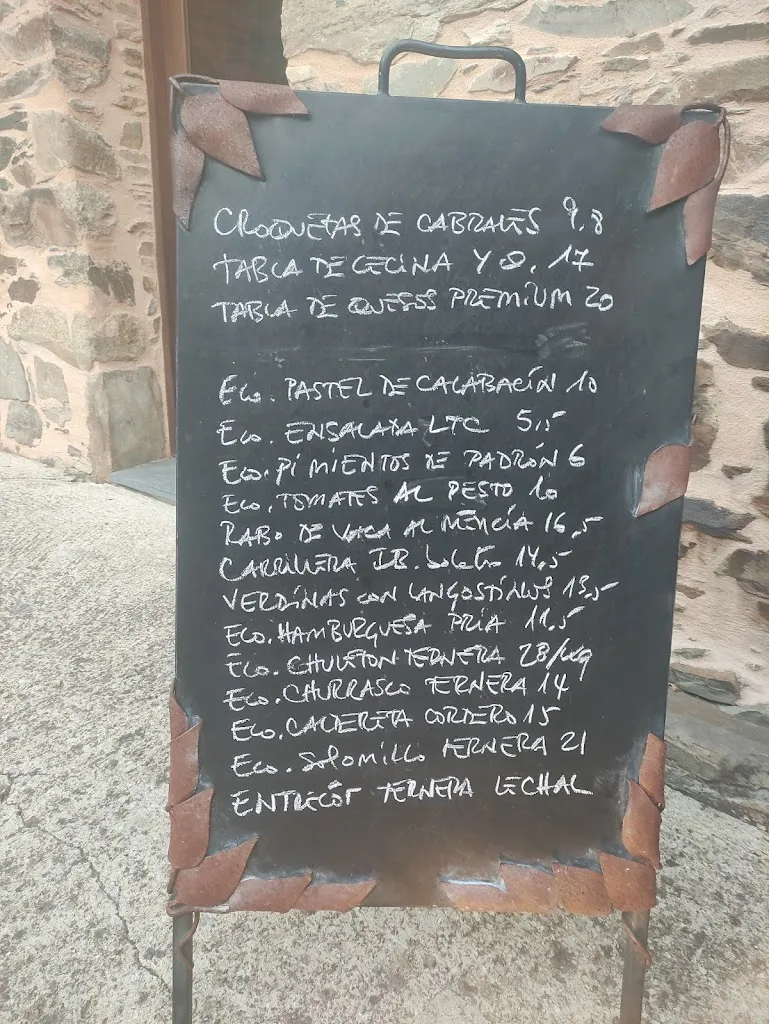 CROQUETAS DE CABRALES 9.8
TABLA DE CECINA Y Q. 17
TABLA DE QUESOS PREMIUM 20
Eco. PASTEL DE CALABACÍN 10
Eco. ENSALADA LTC 5,5
Eco. PIMIENTOS DE PADRÓN 6
Eco. TOMATES AL PESTO 10
RABO DE VACA AL MENCÍA 16,5
CARRILLERA IB. boletus 14,5
VERDINAS CON LANGOSTINOS 13,5
Eco. HAMBURGUESA PRIA 11,5
Eco. CHULETON TERNERA 28/Kg
Eco. CHURRASCO TERNERA 14
Eco. CALDERETA CORDERO 15
Eco. SOLOMILLO TERNERA 21
ENTRECÓT TERNERA LECHAL